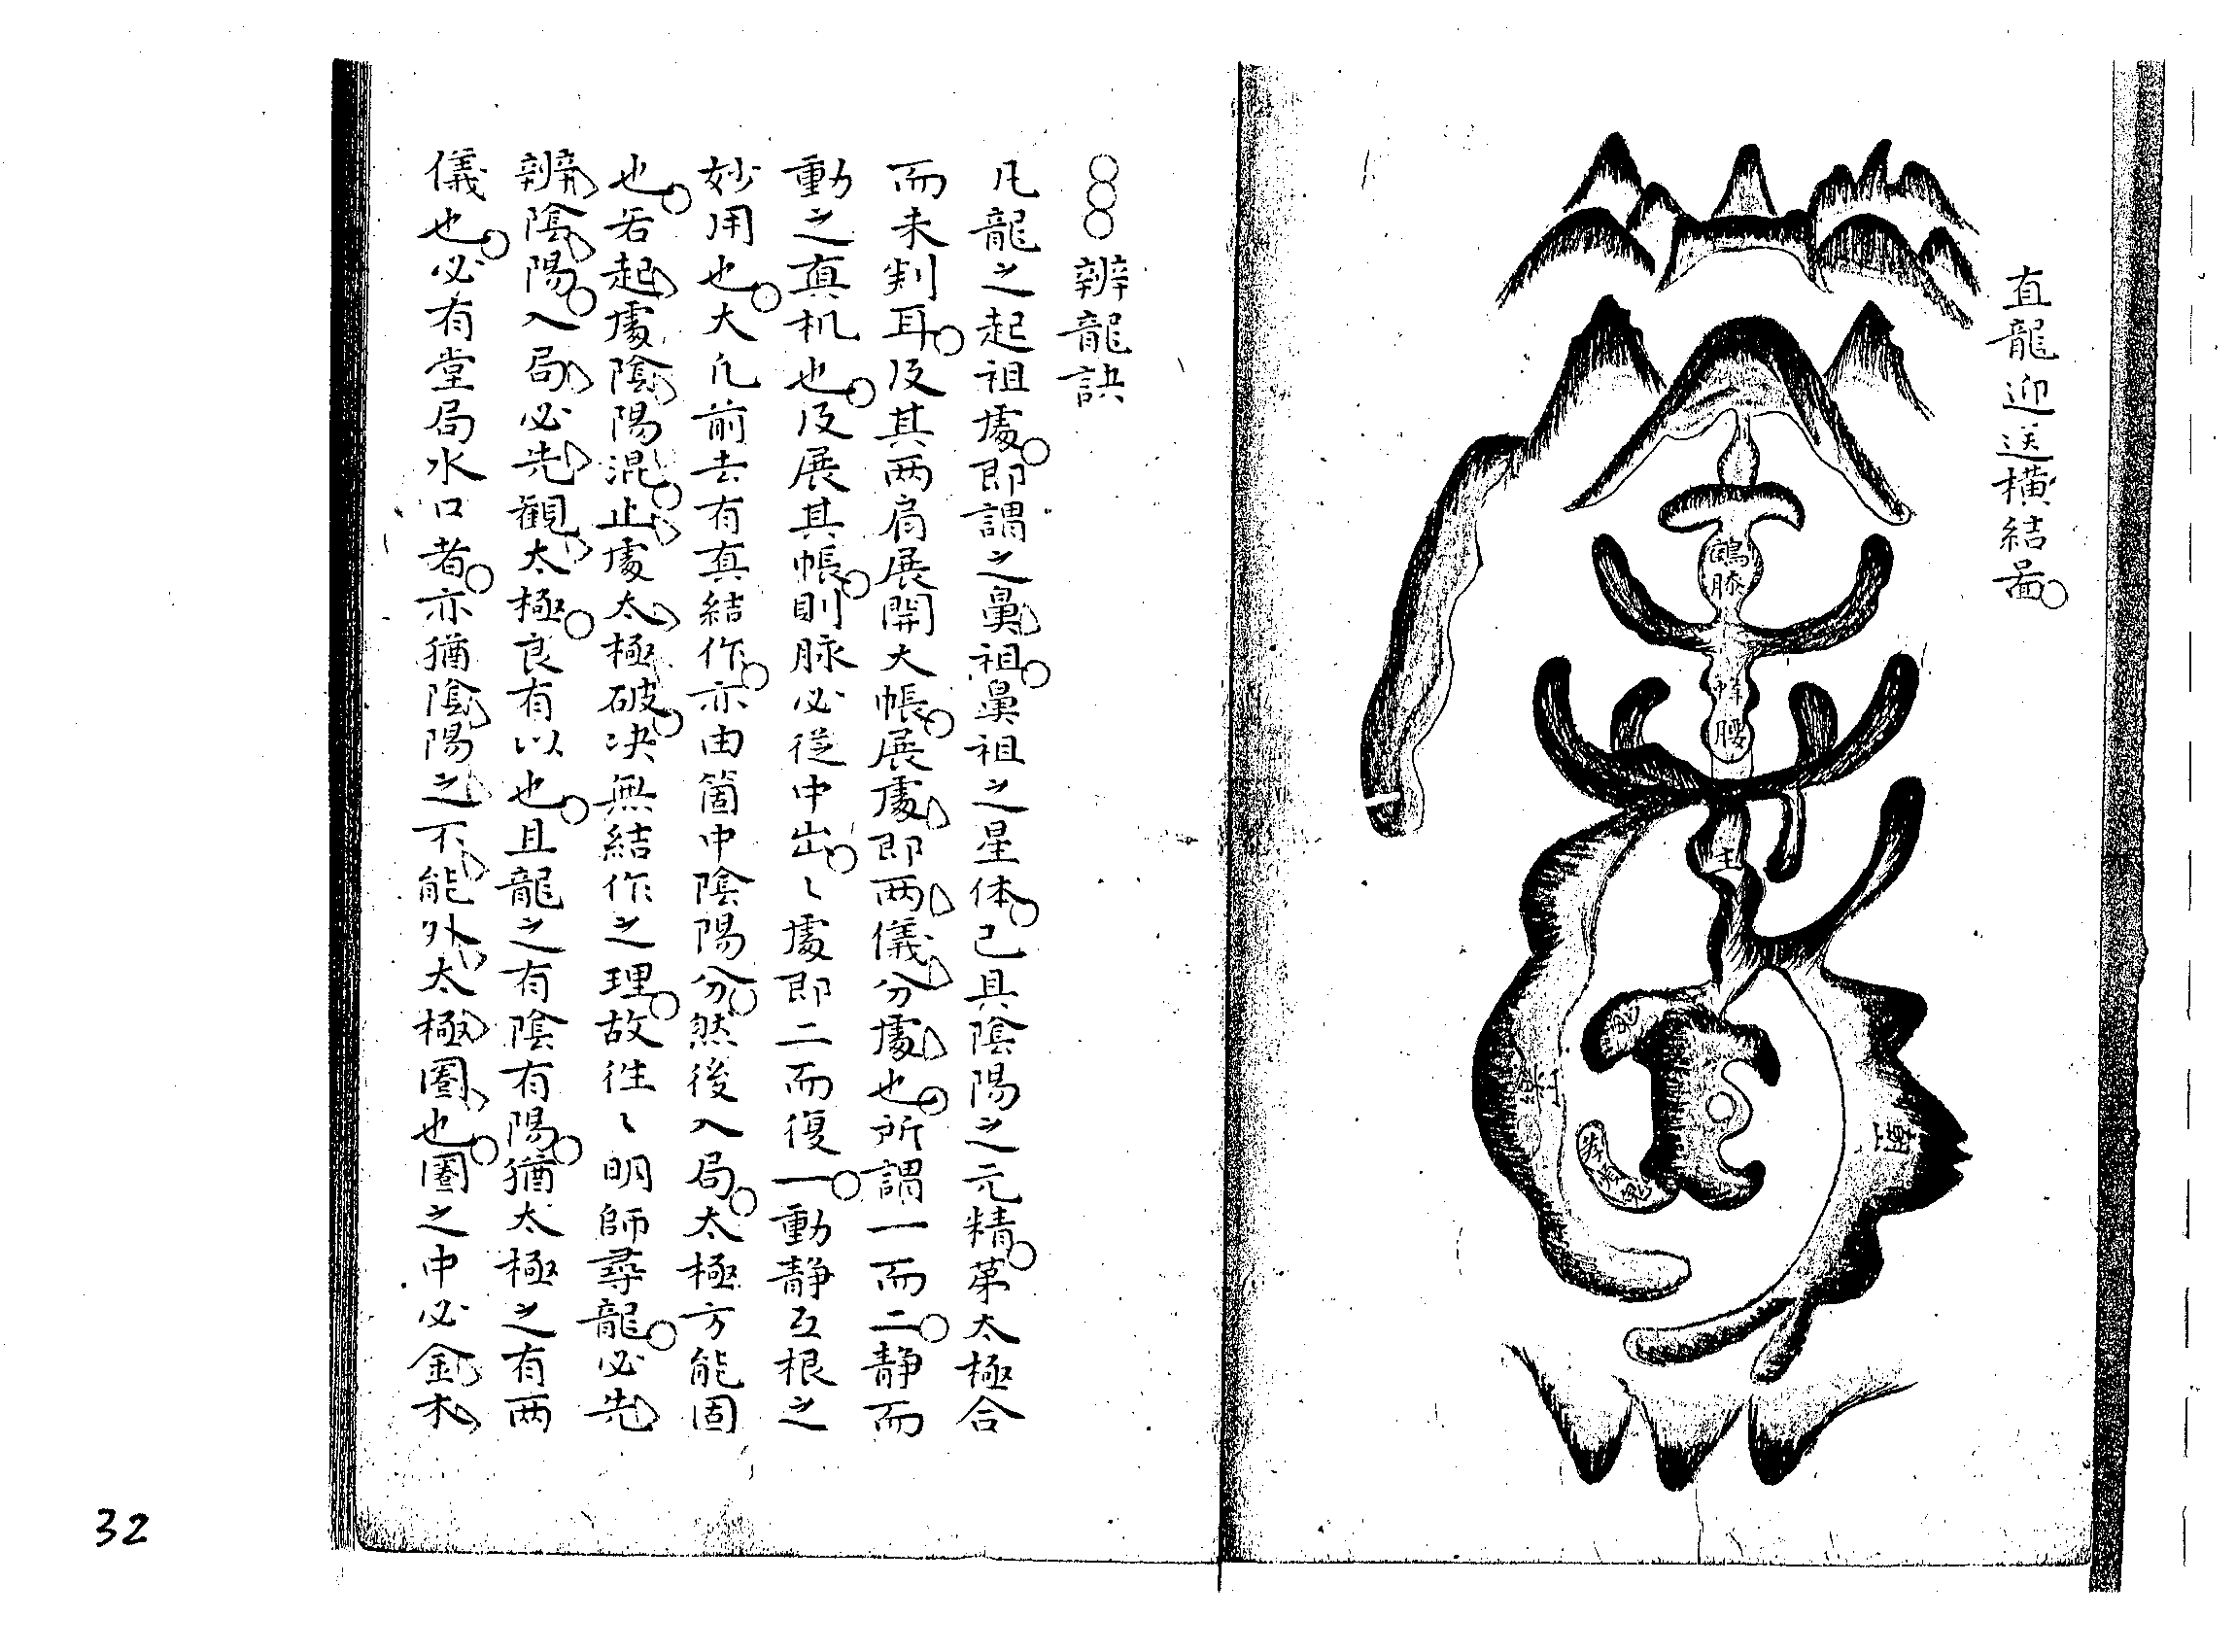 直龍迎送橫結啚
鶴膝
蜂腰
主
案
朝
○○○辨龍訣
凡龍之起祖處即謂之鼻祖鼻祖之星体已具陰陽之元精苐太極合
而未判耳及其两肩展開大帳展處即两儀分處也所謂一而二静而
動之真机也及展其帳則脉必從中出〻處即二而復一動静互根之
妙用也大凢前去有真結作亦由箇中陰陽分然後入局太極方能固
也若起處陰陽混止處太極破决無結作之理故徃〻明師尋龍必先
辨陰陽入局必先觀太極良有以也且龍之有陰有陽猶太極之有两
儀也必有堂局水口者亦猶陰陽之不能外太極圈也圈之中必金木
32